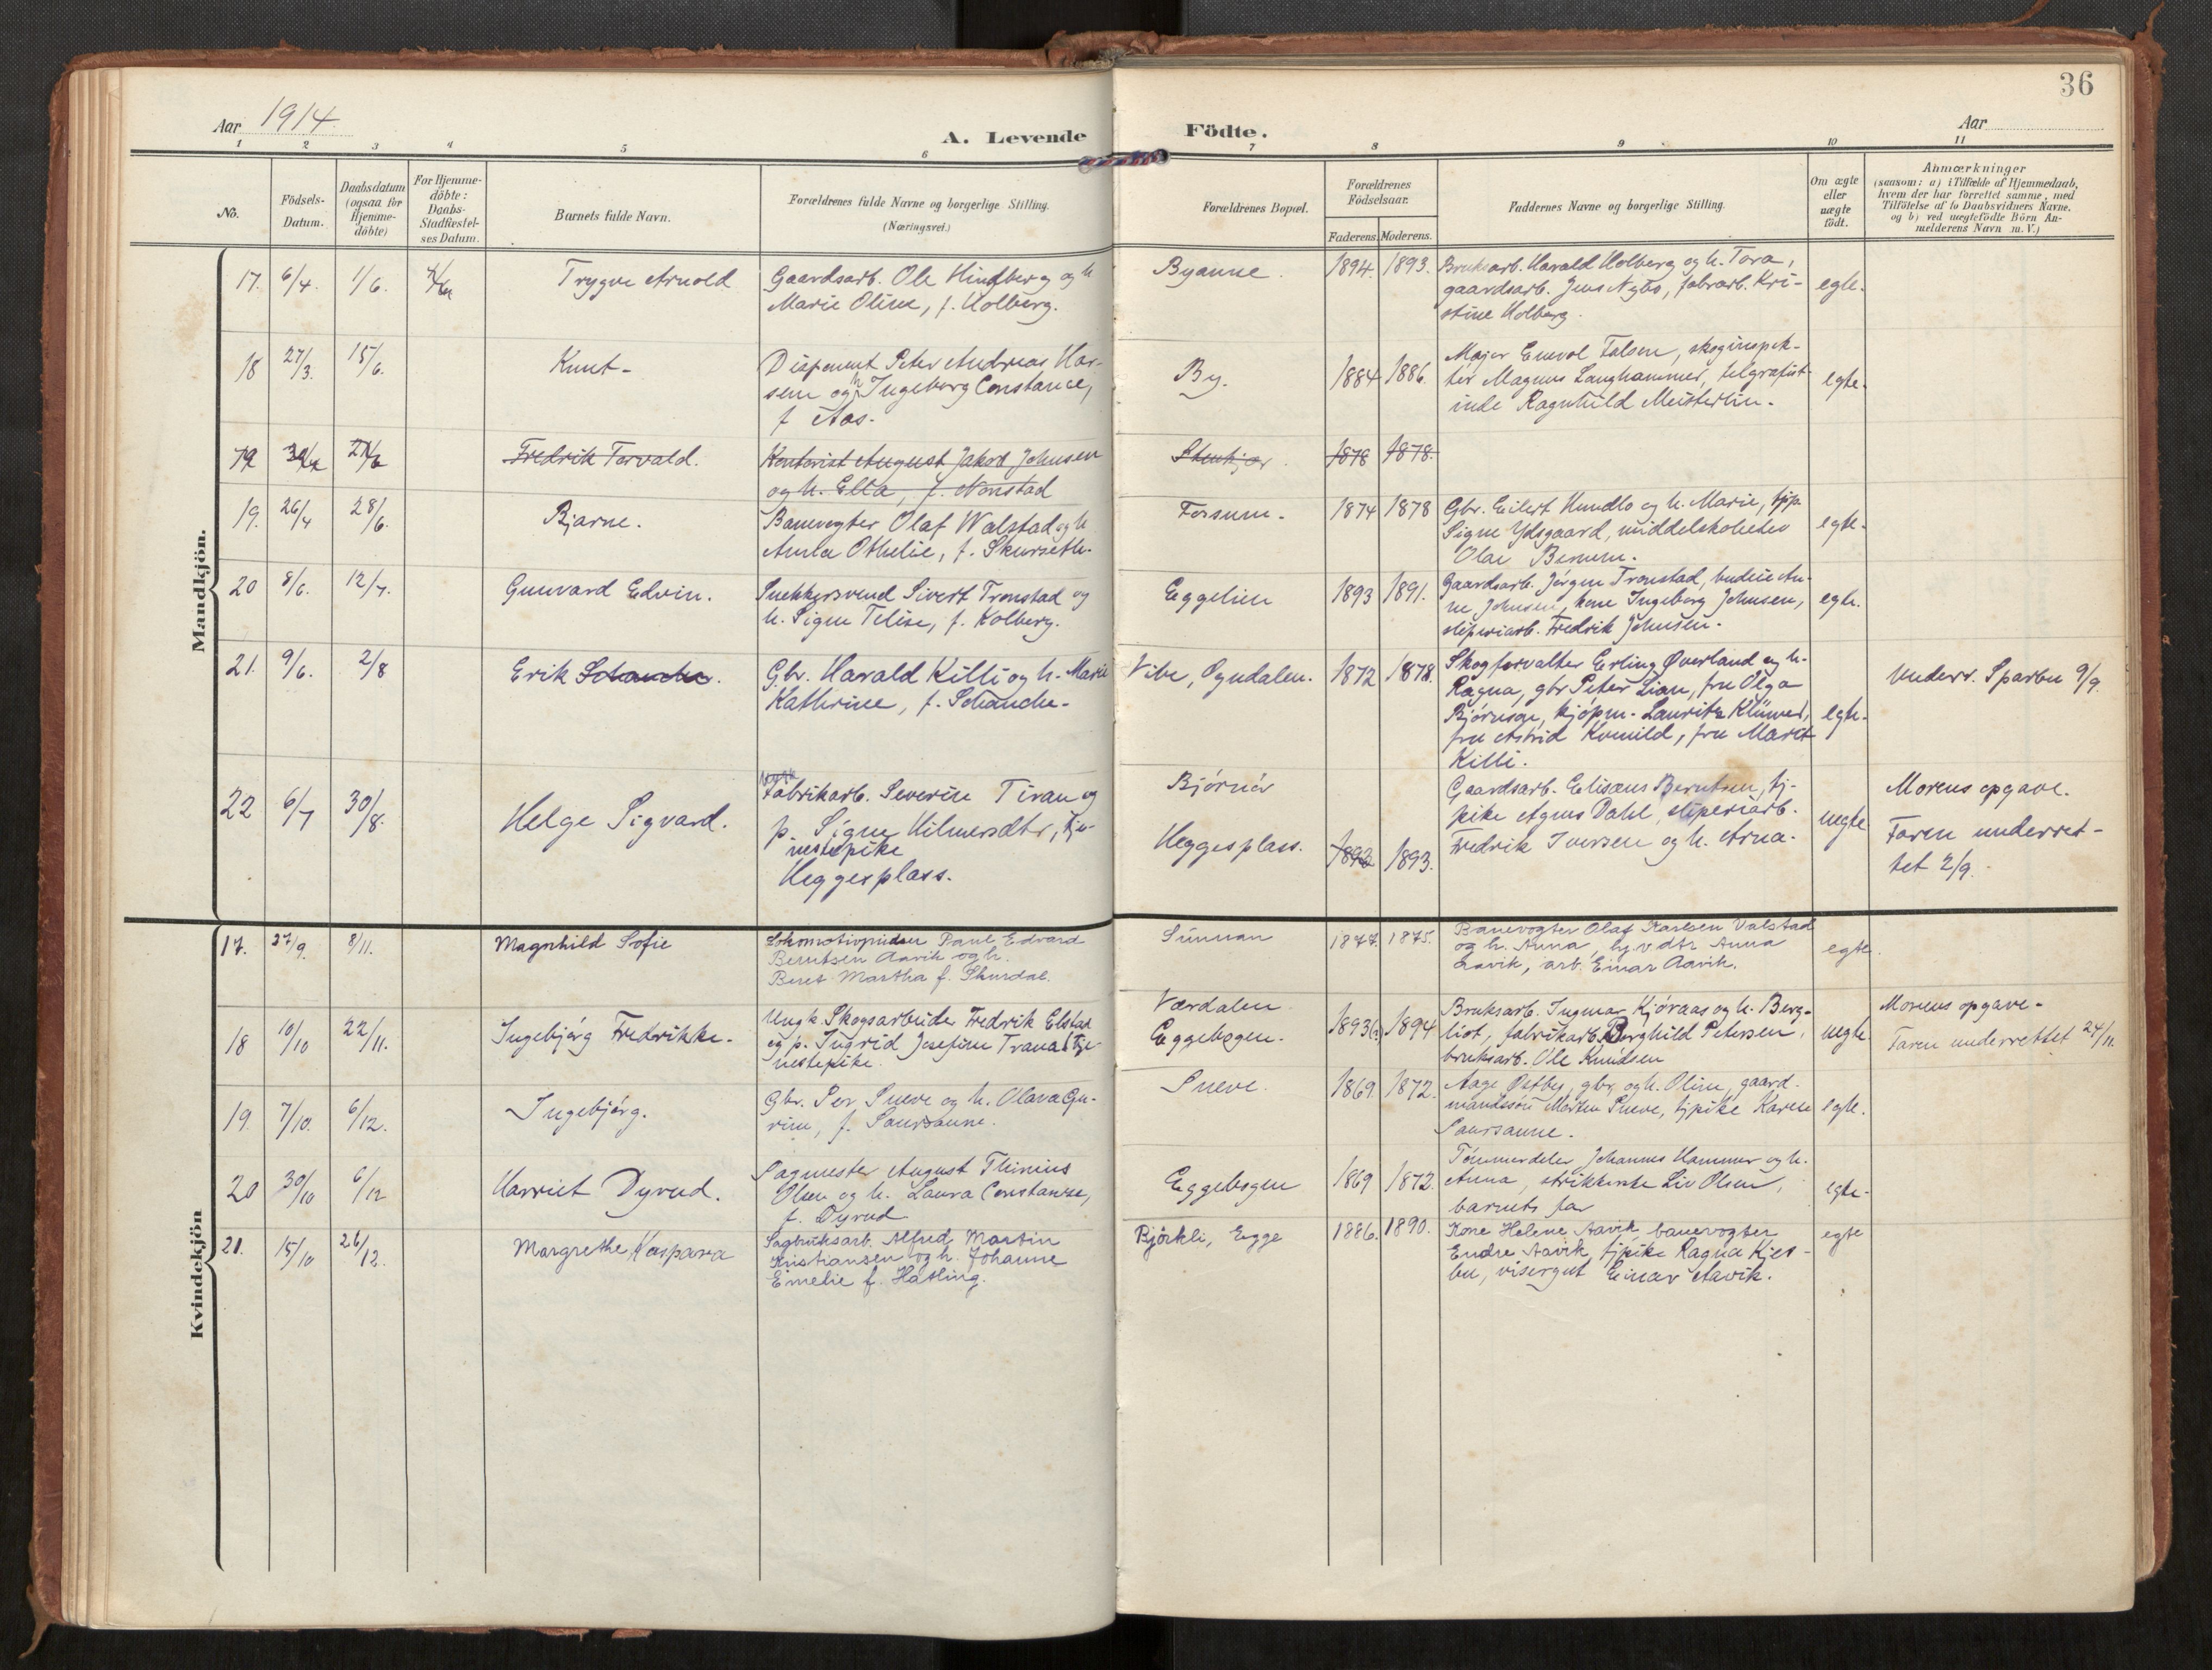 36
Aar 1914
A. Levende Födte.
Aar
1 2 3 4 5 6 7 8 9 10 11
No.
Födsels-
Datum.
Daabsdatum
(ogsaa for
Hjemme-
döbte)
For Hjemme-
döbte:
Daabs-
Stadfæstel-
ses Datum.
Barnets fulde Navn.
Forældrenes fulde Navne og borgerlige Stilling.
(Næringsvei.)
Forældrenes Bopæl.
Forældrenes
Födselsaar.
Faderens. Moderens.
Faddernes Navne og borgerlige Stilling.
Om ægte
eller
uægte
födt.
Anmærkninger
(saasom: a) i Tilfælde af Hjemmedaab,
hvem der har forrettet samme, med
Tilföielse af to Daabsvidners Navne,
og b) ved uægtefödte Börn An-
melderens Navn m. V.)
Mandkjön.
17. 6/4. 1/6.
Trygve Arnold
Gaardsarb. Ole Hindberg og h.
Marie Oline, f. Holberg.
Byanne.
1894. 1893.
Bruksarb. Harald Holberg og h. Tora,
gaardsarb. Jens Nybo, fabrarb. Kri-
stine Holberg.
egte.
18 27/3. 15/6.
Knut-
Disponent Peter Andreas Han-
sen og h. Ingeborg Constance,
f. Aas.
By.
1884 1886.
Major Enevol Falsen, skoginspek-
tør Magnus Langhammer, telgrafist-
inde Ragnhild Meisterlin.
egte.
19
Fredrik Torvald.
Kontorist August Jakob Johnsen
og h. Ella, f. Nonstad
Stenkjær.
1878 1878.
19. 26/4 28/6.
Bjarne.
Banevogter Olaf Walstad og h.
Anna Othelie, f. Skurseth.
Forsum.
1874 1878
Gbr. Eilert Hundlo og h. Marie, tjp.
Signe Ydsgaard, middelskoleelev
Olav
egte.
20 8/6. 12/7.
Gunvard Edvin.
Snekkersvend Sivert Tronstad og
h. Signe Telise, f. Kolberg.
Eggelien
1893 1891.
Gaardsarb. Jørgen Tronstad, budeie An-
ne Johnsen, kone Ingeborg Johnsen,
sliperiarb. Fredrik Johnsen.
egte.
21. 9/6. 2/8
Erik Schanche.
Gbr. Harald Killi og h. Marie
Kathrine, f. Schanche.
Vibe, Ogndalen.
1872 1878.
Skogforvalter Erling Øverland og h.
Ragna, gbr Peter Lian, fru Olga
Bjørnson, kjøpm. Lauritz Klüwer,
fru Astrid Kvmild, fru Marit
Killi.
egte.
Underr. Sparbu 9/9.
22 6/7 30/8.
Helge Sigvard.
Fabrikarb. Severin Tiran og
p. Signe Hilmersdtr, tje-
nestepike
Heggesplass.
Bjørnör
Heggesplass.
1892 1893.
Gaardsarb. Elisæus Berntsen, tj-
pike Agnes Dahl, sliperiarb.
Fredrik Iversen og h. Anna.
uegte
Morens opgave.
Faren underret-
tet 2/9.
Kvindekjön
17. 27/9. 8/11.
Magnhild Sofie
Lokomotivpudser Paul Edvard
Berntsen Aavik og h.
Beret Martha f. Skurdal.
Sunnan
1877. 1875.
Banevogter Olaf Karlsen Valstad
og h. Anna, bgvdtr Anna
Aavik, arb. Einar Aavik.
egte.
18 10/10 22/11.
Ingebjørg Fredrikke.
Ungk. Skogsarbeider Fredrik Elstad
og p. Ingrid Josefine Trana tje-
nestepike.
Værdalen.
Eggebogen.
1893(?) 1894
Bruksarb. Ingmar Kjøraas og h. Berg-
liot, fabrikarb. Borghild Petersen,
bruksarb. Ole Knudsen
uegte.
Morens opgave.
Faren underrettet 24/11.
19. 7/10. 6/12.
Ingebjørg.
Gbr. Per Sneve og h. Olava Gu-
rine, f. Saursaune.
Sneve.
1869. 1872.
Aage Østby, gbr, og h. Oline, gaard-
mandssøn Martin Sneve, tjpike Karen
Saursaune.
egte.
20 30/10 6/12
Harriet Dyrud.
Sagmester August Thinius
Olsen og h. Laura Constanse,
f. Dyrud
Eggebogen
1869 1872.
Tömmerdeler Johannes Hammer og h.
Anna, strikkerske Liv Olsen,
barnets far
egte.
21. 15/10 26/12.
Margrethe Kaspara
Sagbruksarb. Alfred Martin
Kristiansen og h. Johanne
Emelie f. Hatling.
Bjørkli, Egge
1886. 1890.
Kone Helene Aavik, banevogter
Endre Aavik, tjpike Ragna Kjes-
bu, visergut Einar Aavik.
egte